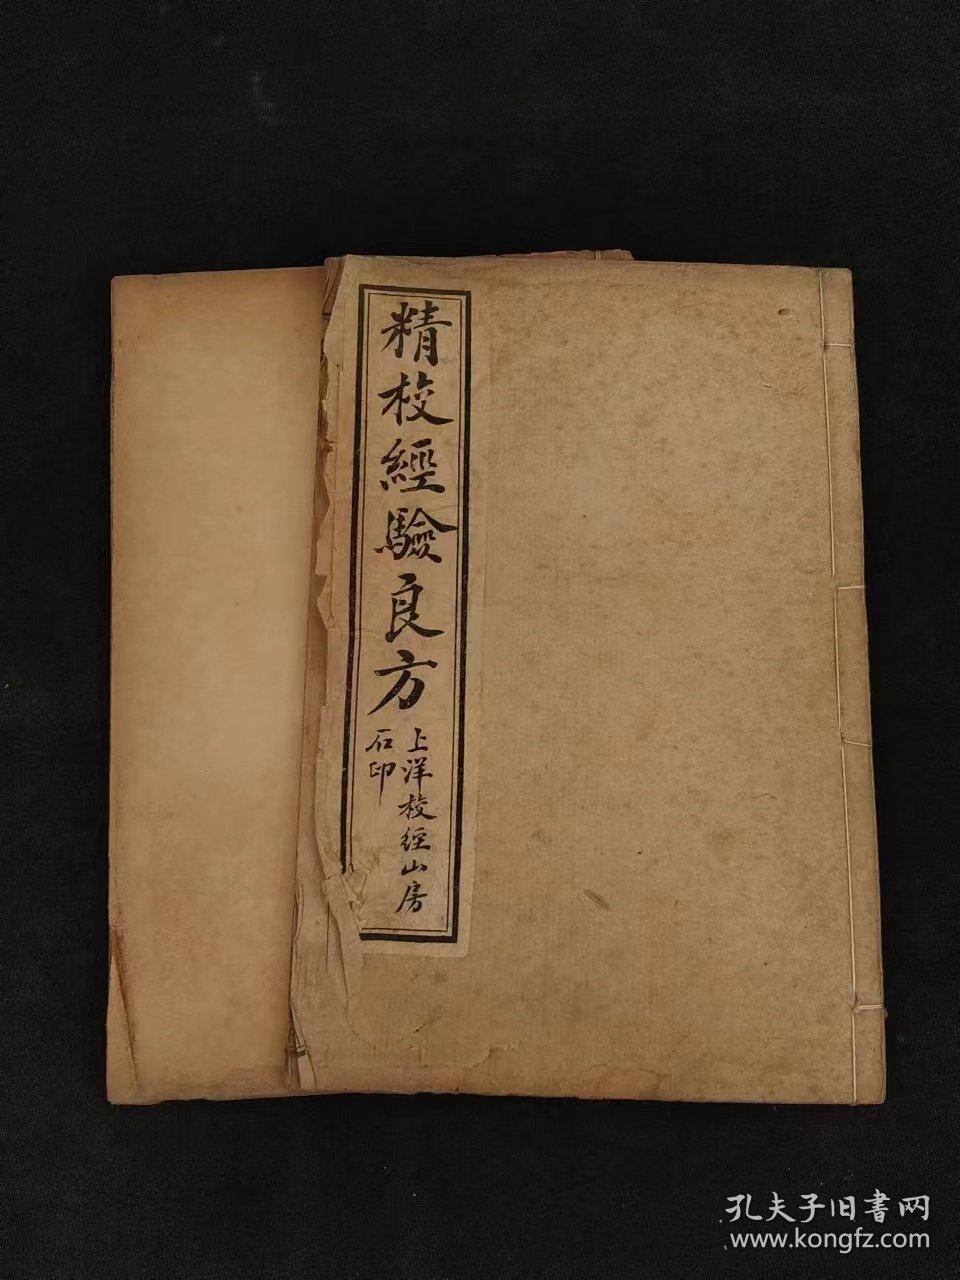 精校經驗良方
上洋校經山房
石印
孔夫子旧書网
www.kongfz.com